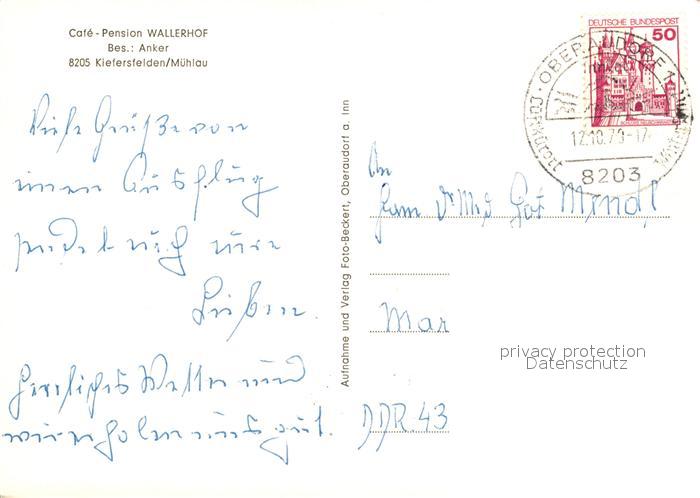 Café - Pension WALLERHOF
Bes.: Anker
8205 Kiefersfelden/Mühlau
Viele Grüße von
einem Ausflug
sendet euch eure
Lieben.
Herrliches Wetter und
wir erholen uns gut.
Aufnahme und Verlag Foto-Beckert, Oberaudorf a. Inn
DEUTSCHE BUNDESPOST
50
OBERAUDORF
Luftkurort
12.10.79-17
8203
An
Fam
Mar
DDR. 43
privacy protection
Datenschutz